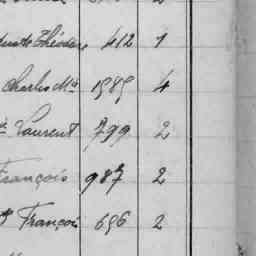 Théodore 412 1
Charles Md 1989 4
Laurent 799 2
François 987 2
François 696 2